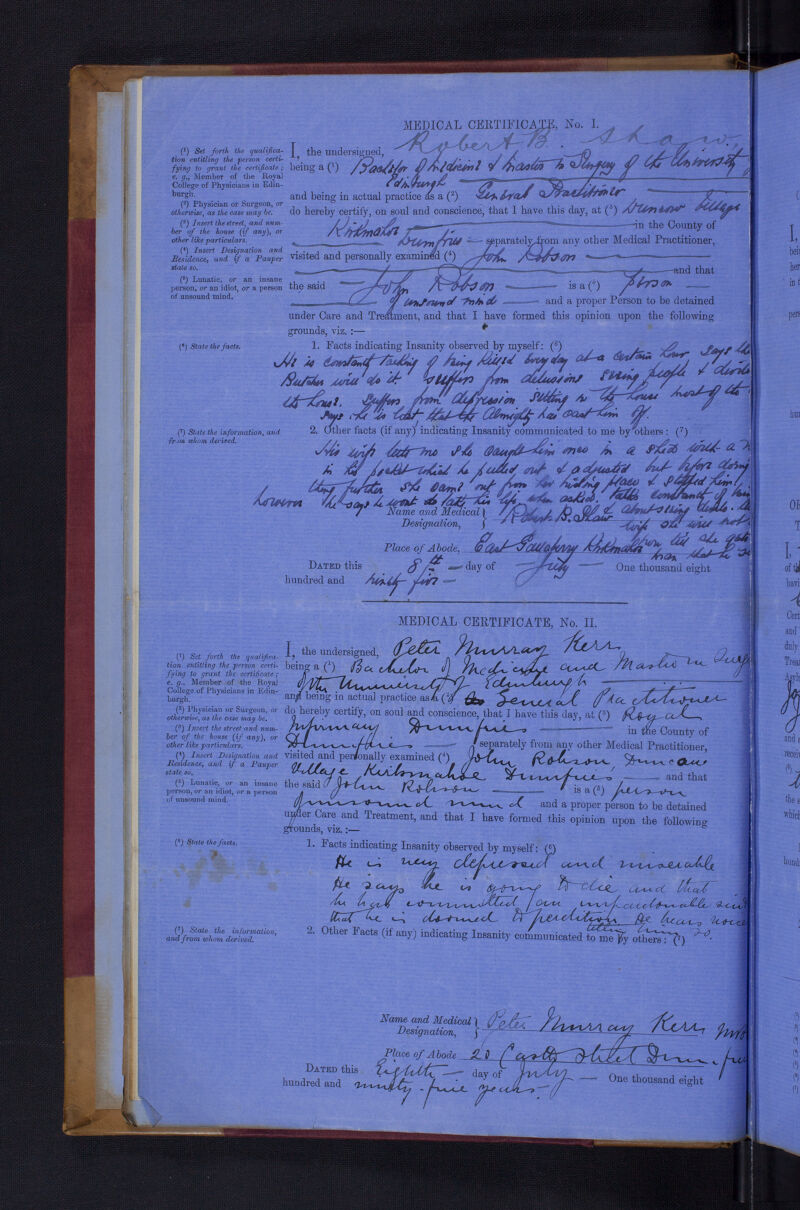 MEDICAL CERTIFICATE, No. I.
(1) Set forth the qualifica-
tion entitling the person certi-
fying to grant the certificate;
e. g., Member of the Royal
College of Physicians in Edin-
burgh.
(2) Physician or Surgeon, or
otherwise, as the case may be.
(3) Insert the street, and num-
ber of the house (if any), or
other like particulars.
(4) Insert Designation and
Residence, and if a Pauper
state so.
(5) Lunatic, or an insane
person, or an idiot, or a person
of unsound mind.
I, the undersigned, Robert B. Shaw,
being a (1) Bachelor of Medicine & Master in Surgery of the University
Edinburgh
and being in actual practice as a (2) General Practitioner
do hereby certify, on soul and conscience, that I have this day, at (3) Duncow Village
Kirkmahoe in the County of
Dumfries separately from any other Medical Practitioner,
visited and personally examined (4) John Robson
and that
the said John Robson is a (5) person
of unsound mind and a proper Person to be detained
under Care and Treatment, and that I have formed this opinion upon the following
grounds, viz. :—
(6) State the facts.
1. Facts indicating Insanity observed by myself: (6)
He is constantly talking of being killed every day at a certain hour, says the
Butcher will do it. Suffers from delusions seeing people & devils
the house. Suffers from depression sitting in the house most of the
says he is lost that the Almighty has cast him off.
(7) State the information, and
from whom derived.
2. Other facts (if any) indicating Insanity communicated to me by others: (7)
His wife tells me she caught him once in a shed with a
in his pocket which he pulled out & adjusted but before doing
thing further she came out from her hiding place & stopped him.
however he says he wont take his life when asked. Talks constantly of
Name and Medical Designation, Robert B. Shaw & about seeing devils.
wife she will not
Place of Abode, East Gallaberry Kirkmahoe
DATED this 8th day of July One thousand eight
hundred and ninety five
MEDICAL CERTIFICATE, No. II.
(1) Set forth the qualifica-
tion entitling the person certi-
fying to grant the certificate;
e. g., Member of the Royal
College of Physicians in Edin-
burgh.
(2) Physician or Surgeon, or
otherwise, as the case may be.
(3) Insert the street and num-
ber of the house (if any), or
other like particulars.
(4) Insert Designation and
Residence, and if a Pauper
state so.
(5) Lunatic, or an insane
person, or an idiot, or a person
of unsound mind.
I, the undersigned, Peter Murray Kerr
being a (1) Bachelor of Medicine and Master in Surg
of the University of Edinburgh
and being in actual practice as a (2) General Practitioner
do hereby certify, on soul and conscience, that I have this day, at (3) Royal
Infirmary Dumfries in the County of
Dumfries separately from any other Medical Practitioner,
visited and personally examined (4) John Robson, Duncow
Village Kirkmahoe Dumfries and that
the said John Robson is a (5) person
of unsound mind and a proper person to be detained
under Care and Treatment, and that I have formed this opinion upon the following
grounds, viz. :—
(6) State the facts.
1. Facts indicating Insanity observed by myself: (6)
He is very depressed and miserable
He says he is going to die and that
he has committed an unpardonable sin
that he is doomed to perdition he hears voice
telling him so.
(7) State the information,
and from whom derived.
2. Other Facts (if any) indicating Insanity communicated to me by others: (7)
Name and Medical Designation, Peter Murray Kerr MB
Place of Abode 20 Castle Street Dumfries
DATED this Eighth day of July One thousand eight
hundred and ninety-five years